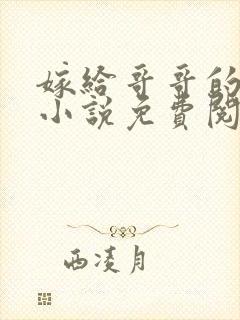 嫁给哥哥的
小说免費閱
西凌月